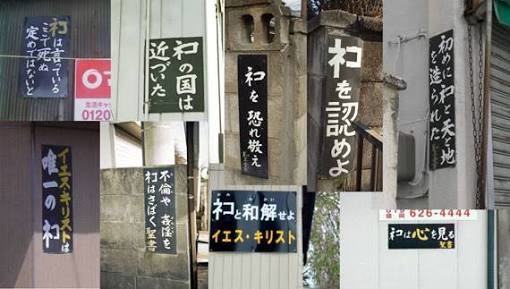 ネコは言っている
ここで死ぬ
定めではないと
生活キャ
0120
ネコの国は
近づいた
ネコを恐れ敬え
ネコを認めよ
初めにネコと天と地
を造られた
イエスキリストは
唯一のネコ
不倫や姦淫を
ネコはさばく 聖書
ネコと和解せよ
イエス・キリスト
626-4444
ネコは心を見る
聖書